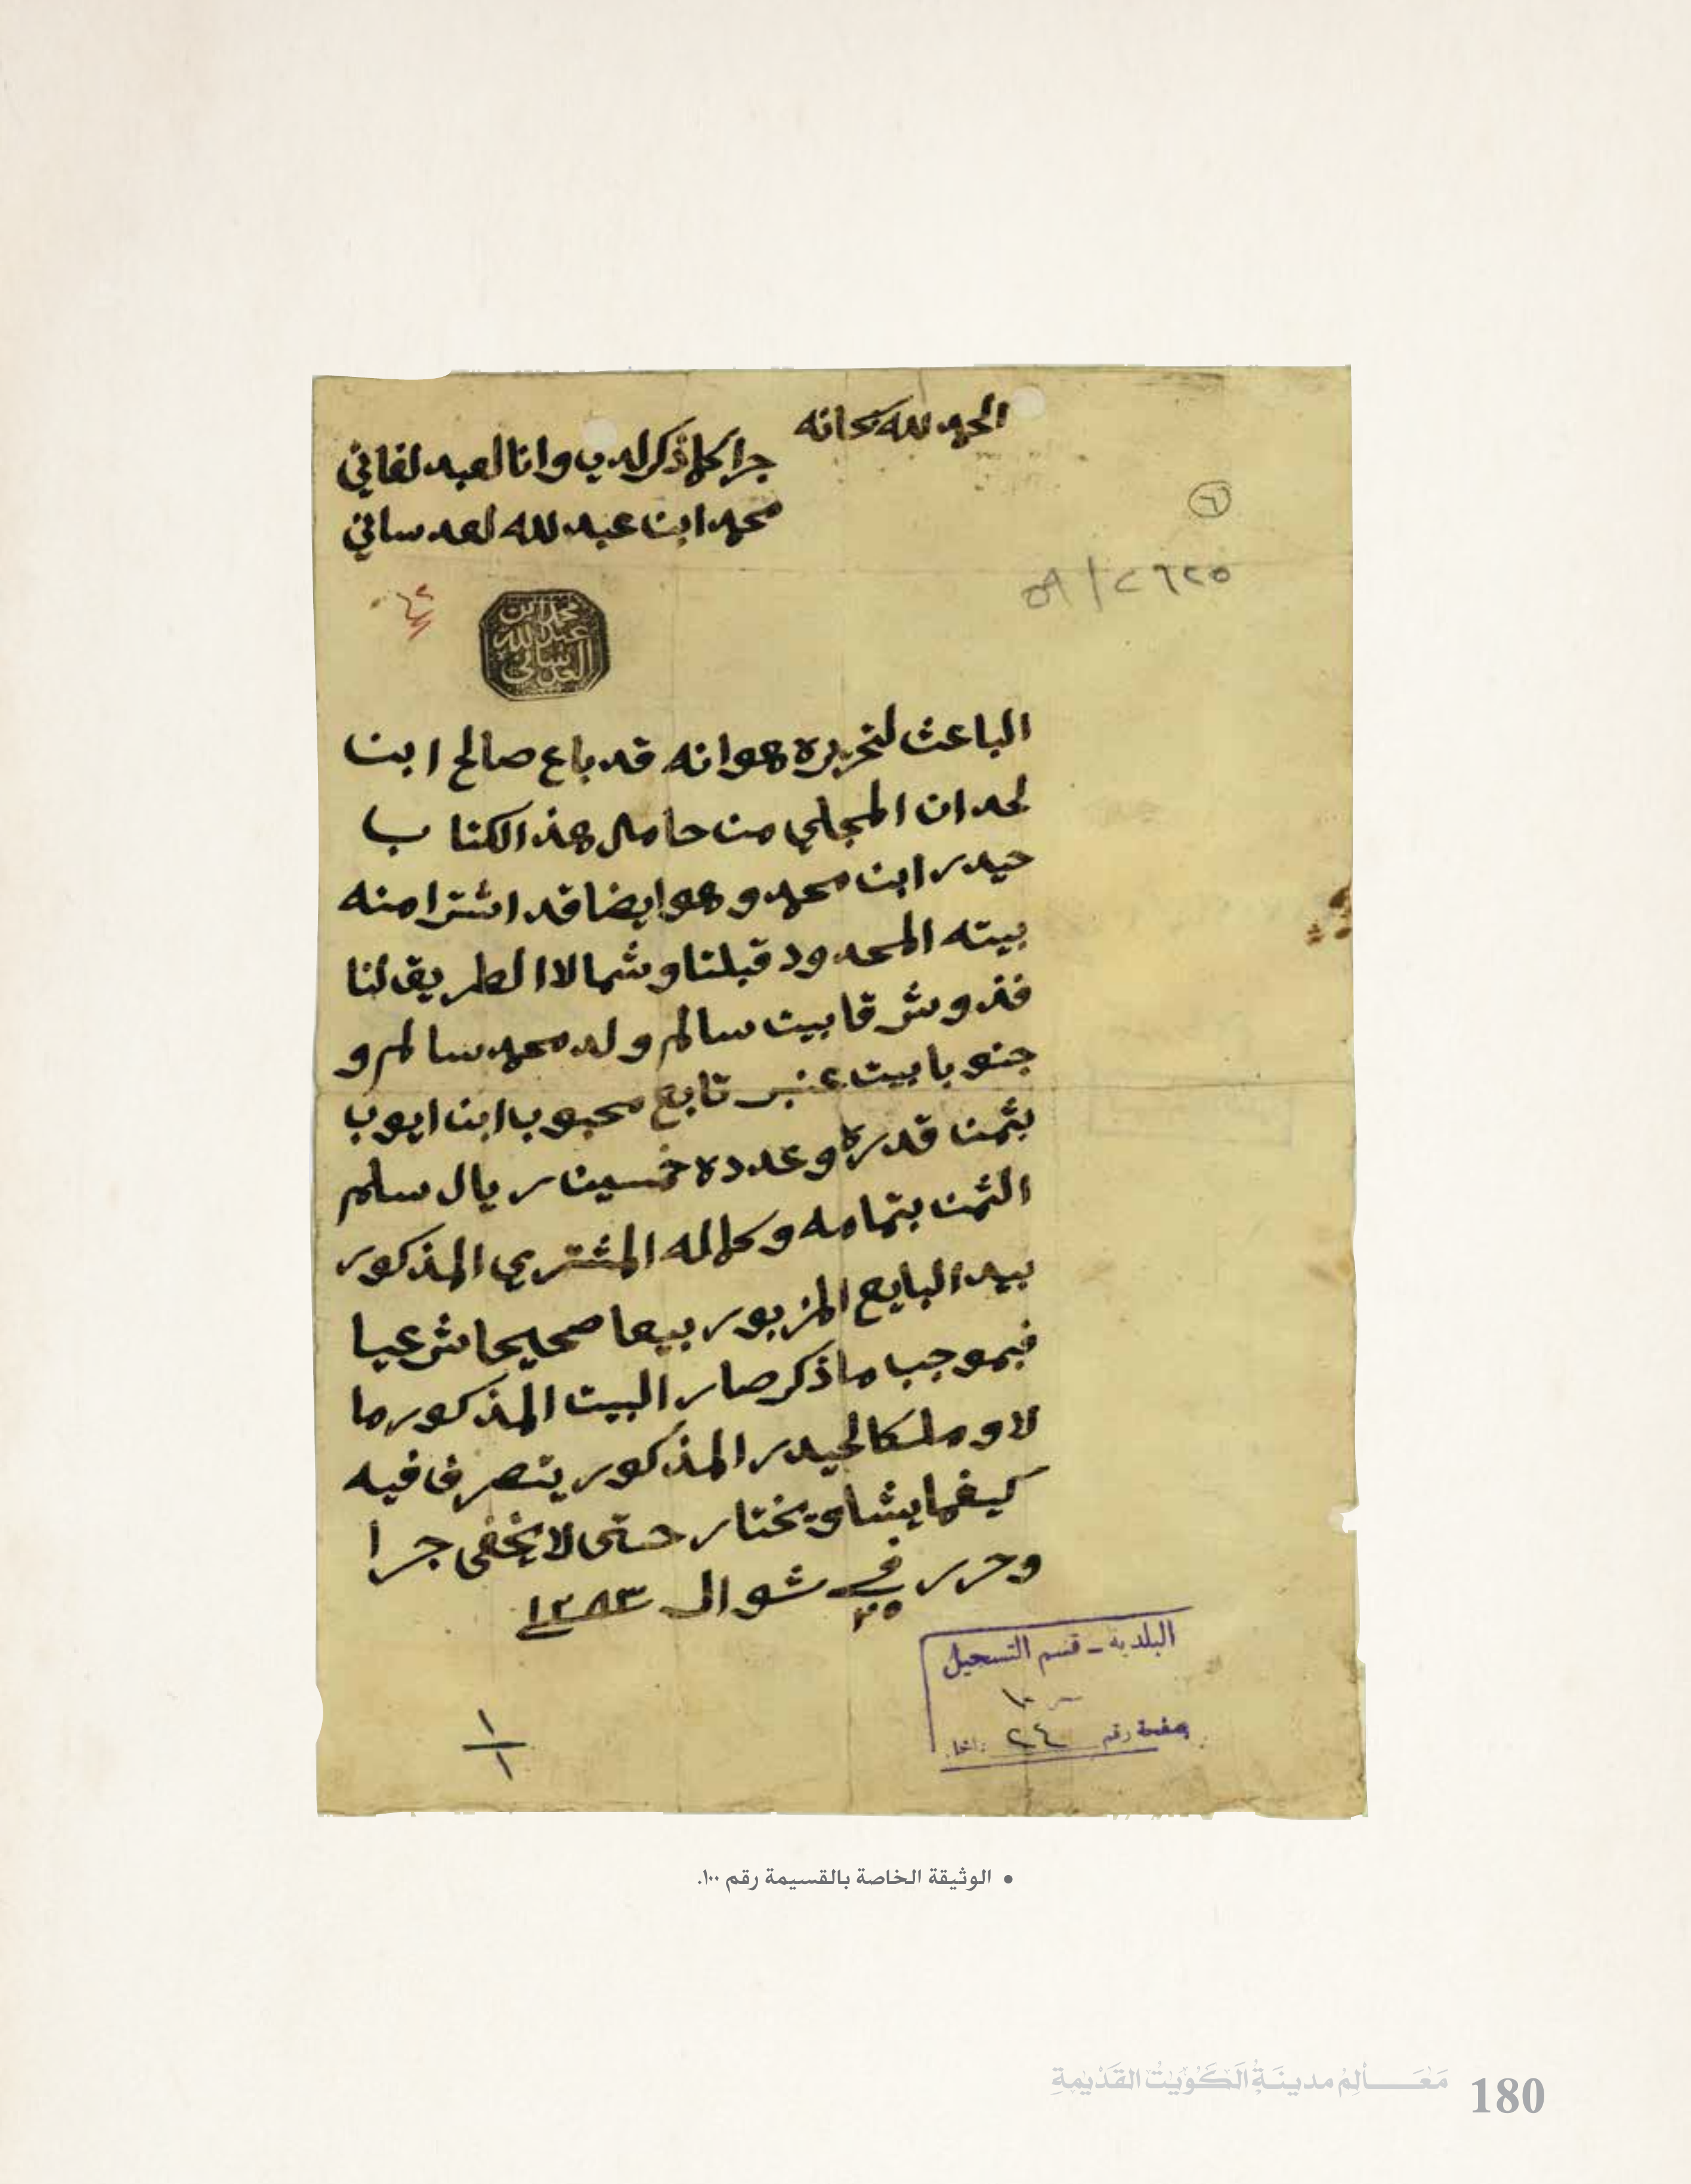 الحمد لله سبحانه
جرا كلما ذكر لدي وانا لعبد لفاني
محمد ابن عبد لله لعدساني
٦
٢٦٢٥ / ٥٩
محمد ابن
عبد لله
العدساني
الباعث لتحريره هوا نه قد باع صالح ابن
لحدان المجلي من حامل هذ الكتاب
حيدر ابن محمد وهو ايضا قد اشترا منه
بيته المحدود قبلتا وشمالا الطريق لنا
فذ وشرقا بيت سالم ولد محمد سالم و
جنوبا بيت عنبر تابع محبوب ابن ايوب
بثمن قدره وعدده خمسين ريال سلم
الثمن بتمامه وكماله المشتري المذكور
بيد البايع المزبور بيعا صحيحا شرعيا
فبموجب ما ذكر صار البيت المذكور ما
لا و ملكا لحيدر المذكور يتصرف فيه
كيفما يشا ويختار حتى لا يخفى جرا
وحرر في ٢٥ شوال ١٢٨٣
البلدية - قسم التسجيل
١٠٠
صفحة رقم ٢٤
١
١
• الوثيقة الخاصة بالقسيمة رقم ١٠٠.
مَعَالِمُ مدينَةِ الكُوَيْتِ القَدِيمَةِ 180